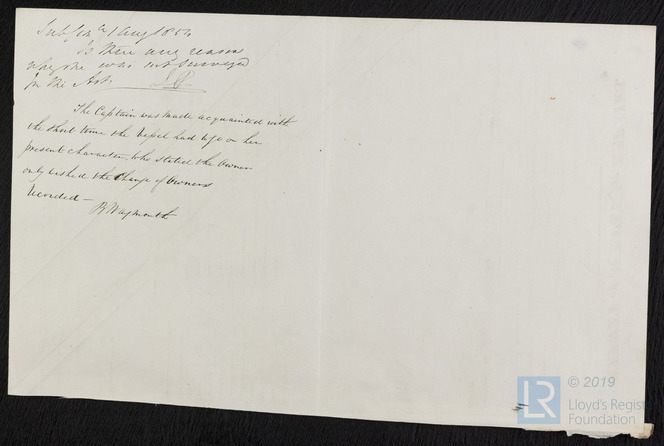 Aug 1854
Is there any reason
why she was not surveyed
for the A1.
The Captain was made acquainted with
the short time the Vessel had to go on her
present character, who stated the Owner
only wished the Change of Owners
recorded —
B Waymouth
LR
© 2019
Lloyd's Regist
Foundation